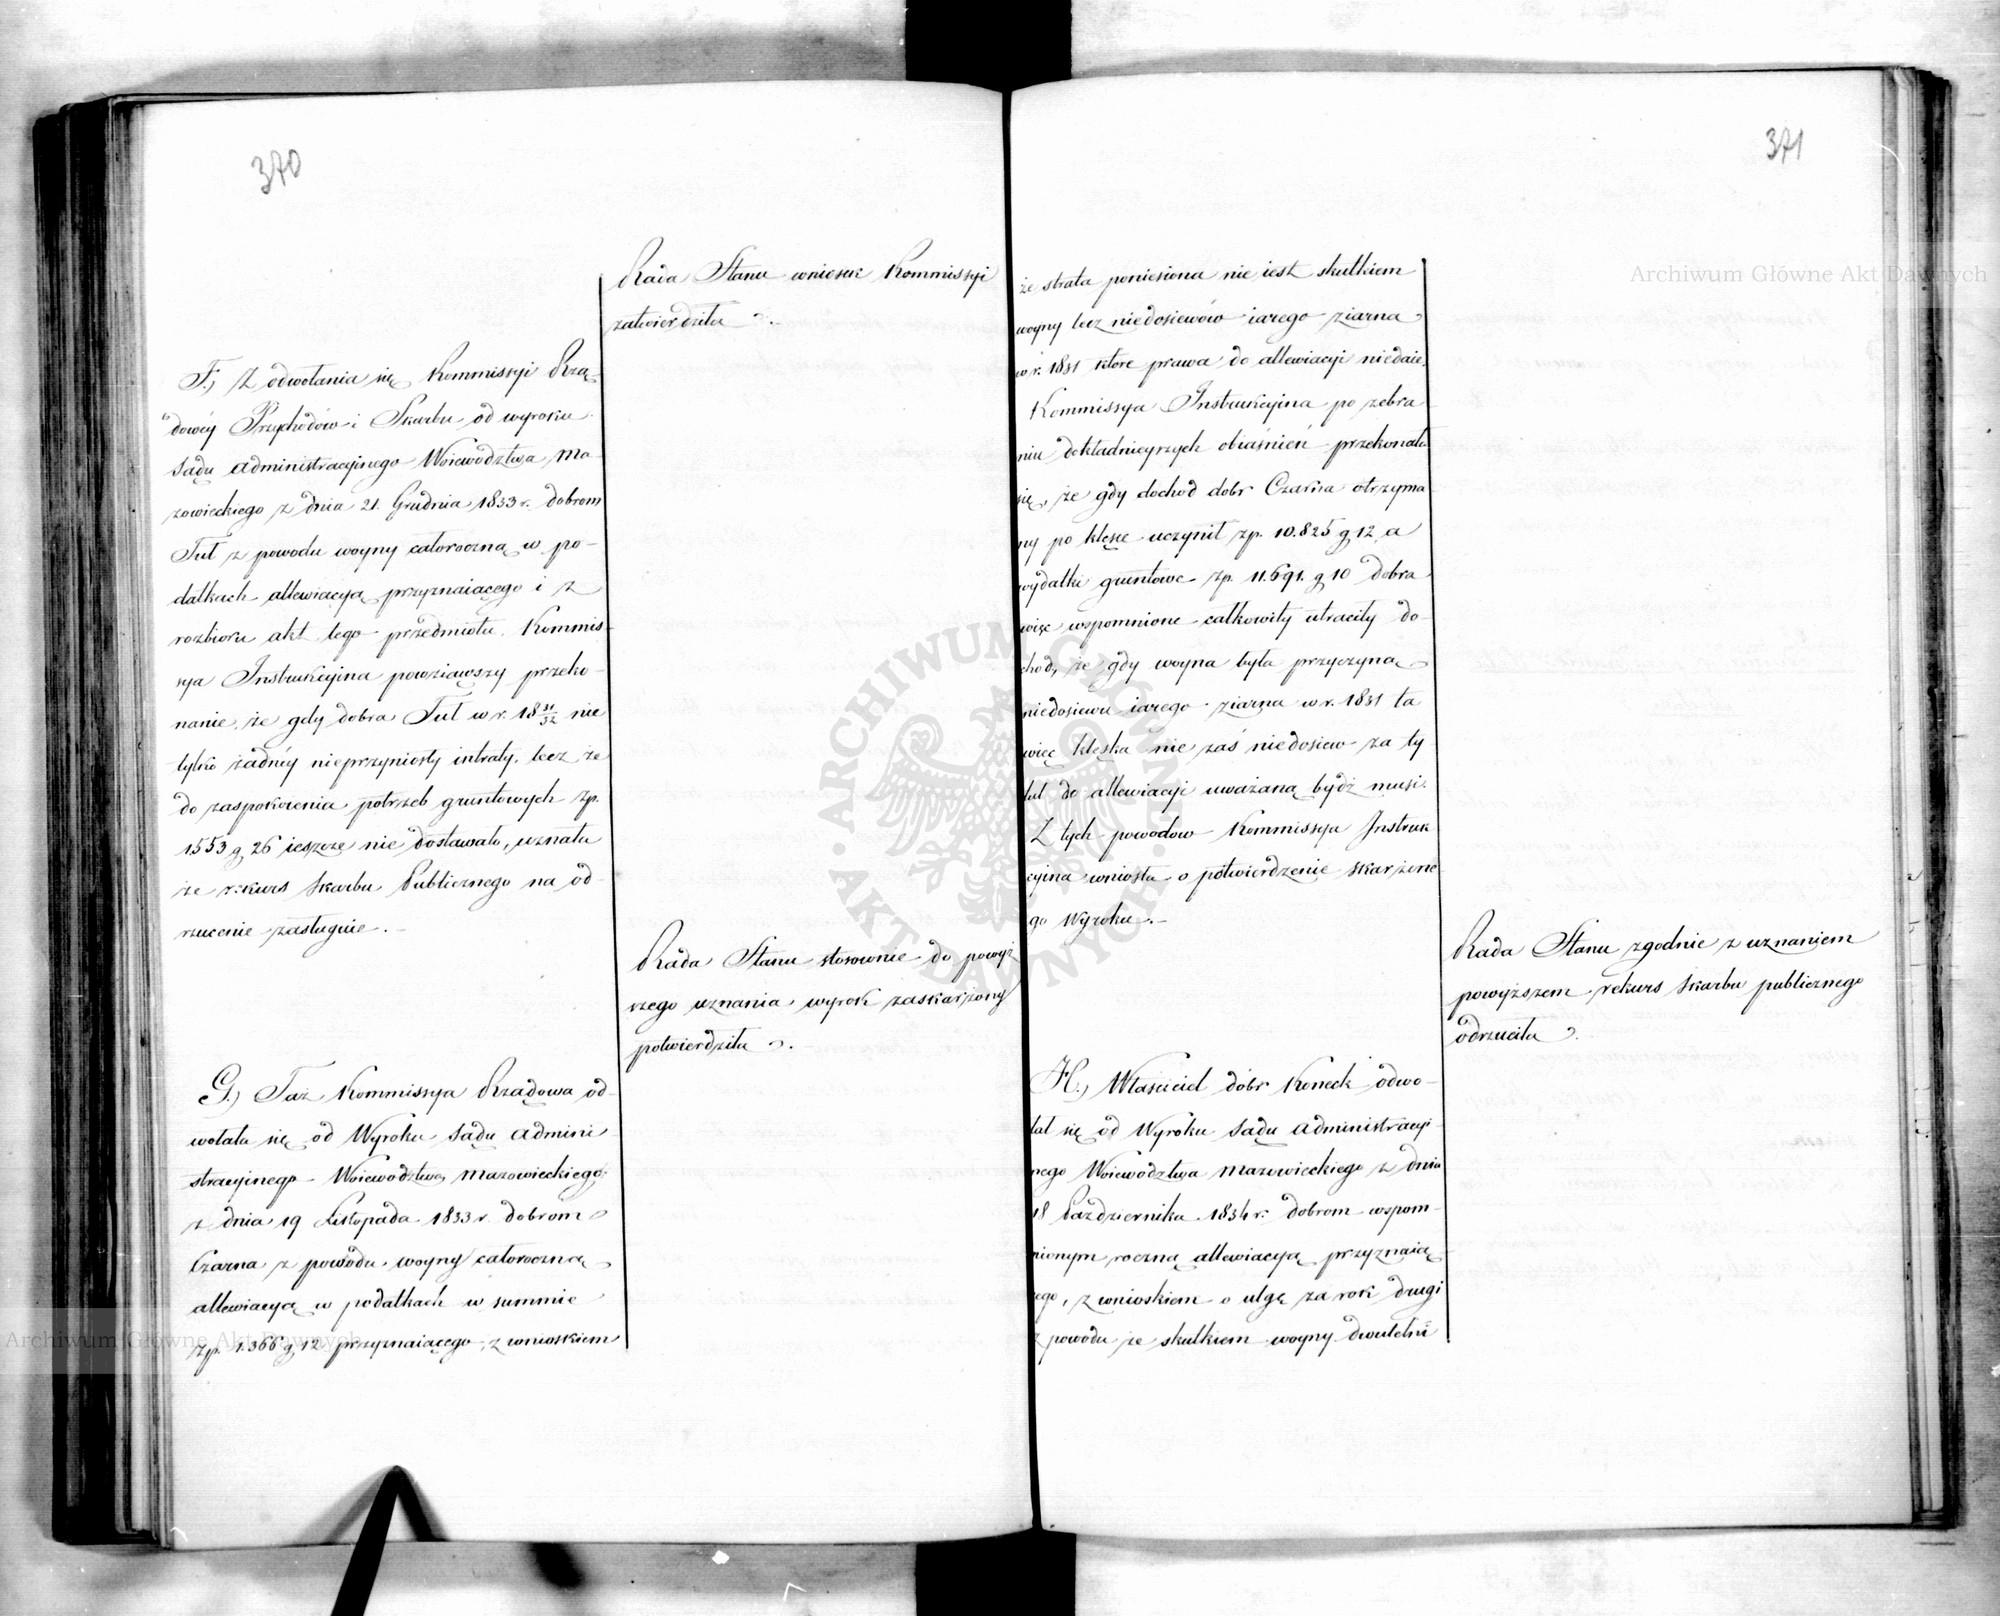 370
Rada Stanu wniosek Kommissyi
zatwierdziła.
F.) Z odwołania się Kommissyi Rzą-
dowéy Przychodów i Skarbu od wyroku
Sądu Administracyjnego Woiewództwa Ma
zowieckiego z dnia 21. Grudnia 1833 r. dobrom
Tuł z powodu woyny całoroczną w po-
datkach allewiacyą przyznaiącego i z
rozbioru akt tego przedmiotu Kommis-
sya Instrukcyjna powziąwszy przeko-
nanie, że gdy dobra Tuł w r. 18 31/32 nie
tylko żadnéy nieprzyniosły intraty, lecz że
do zaspokoienia potrzeb gruntowych zp.
1553 g 26 ieszcze nie dostawało, uznała
że rekurs Skarbu Publicznego na od-
rzucenie zasługuie.-
Rada Stanu stosownie do powyż
szego uznania wyrok zaskarżony
potwierdziła.
G.) Taż Kommissya Rządowa od-
wołała się od Wyroku Sądu Admini-
stracyinego Woiewództwa Mazowieckiego
z dnia 19 Listopada 1833 r. dobrom
Czarna z powodu woyny całoroczną
allewiacyą w podatkach w summie
zp. 1.366 g 12 przyznaiącego, z wnioskiem
371
że strata poniesiona nie iest skutkiem
woyny lecz niedosiewów iarego ziarna
w r. 1831 które prawa do allewiacyi niedaie.
Kommissya Instrukcyina po zebra
niu dokładnieyszych obiaśnień przekonała
się, że gdy dochod dobr Czarna otrzyma
ny po klęsce uczynił zp. 10.825 g 12 a
wydatki gruntowe zp. 11.691. g 10 dobra
więc wspomnione całkowity utraciły do-
chod, że gdy woyna była przyczyną
niedosiewu iarego ziarna w r. 1831 ta
więc klęska nie zaś niedosiew za ty
tuł do allewiacyi uważaną bydź musi.
Z tych powodow Kommissya Instruk
cyina wniosła o potwierdzenie skarżone
go Wyroku.-
Rada Stanu zgodnie z uznaniem
powyższem rekurs Skarbu publicznego
odrzuciła.
H.) Właściciel dóbr Koneck odwo-
łał się od Wyroku Sądu Administracyi-
nego Woiewództwa Mazowieckiego z dnia
18 Października 1834 r. dobrom wspom-
nionym roczną allewiacyą przyznaią-
cego, z wnioskiem o ulgę za rok drugi
z powodu że skutkiem woyny dwuletni
Archiwum Główne Akt Dawnych
Archiwum Główne Akt Dawnych
ARCHIWUM GŁÓWNE · AKT DAWNYCH ·